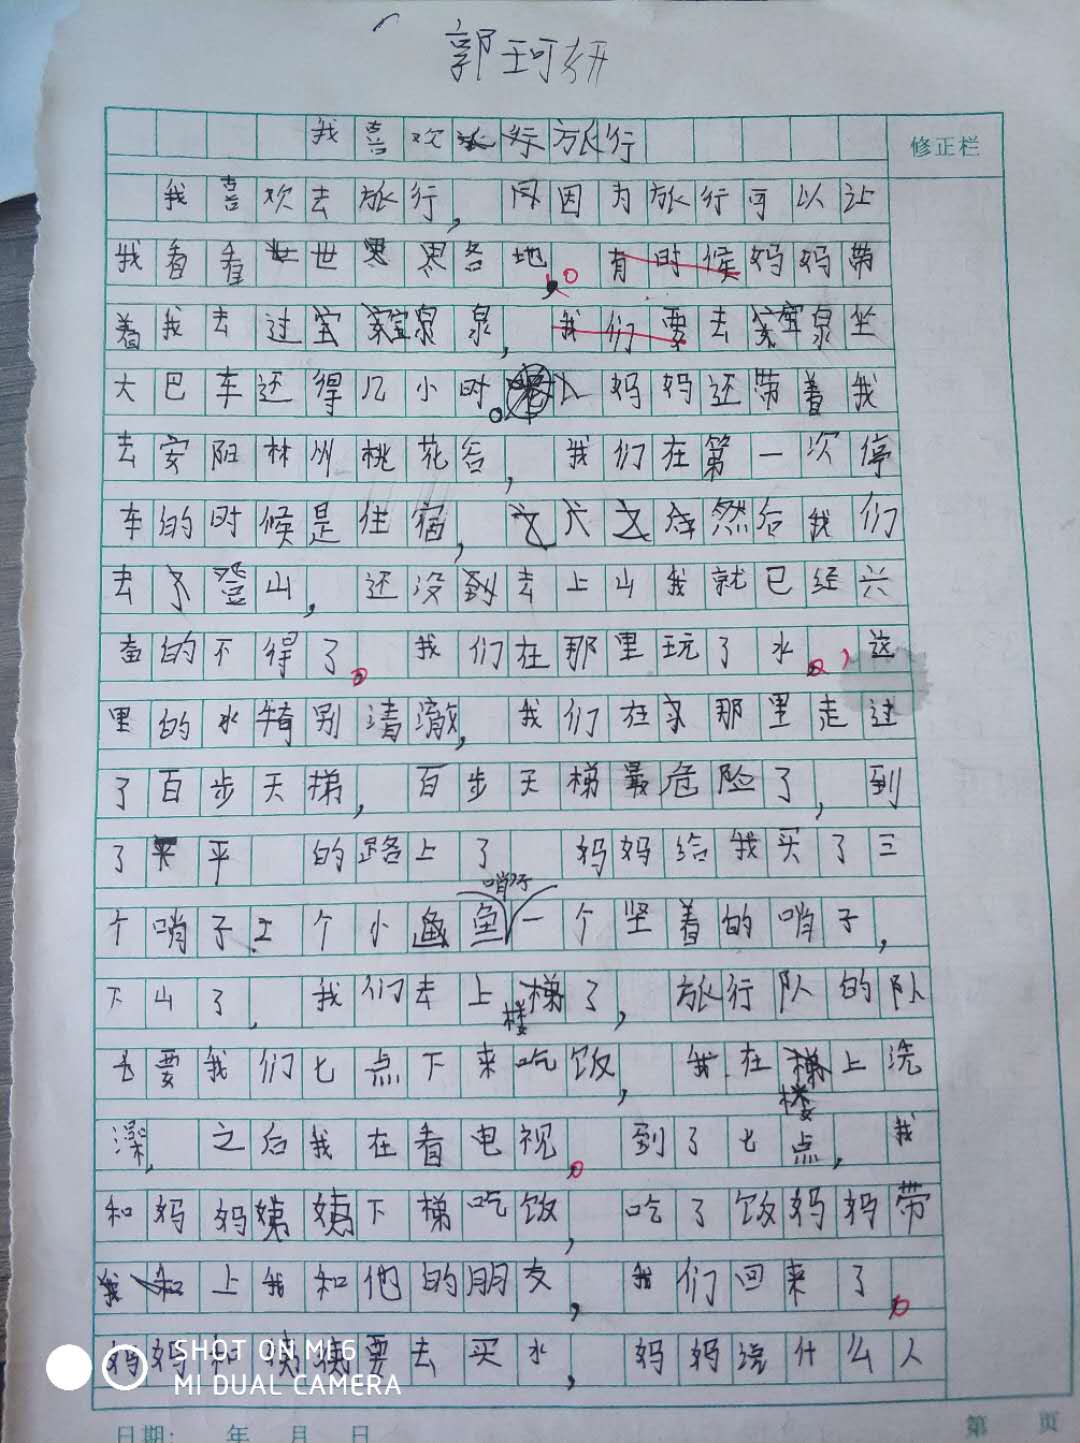 郭珂妍
我喜欢旅行
修正栏
我喜欢去旅行，因为旅行可以让
我看看世界各地。有时候妈妈带
着我去过宝泉，我们要去宝泉坐
大巴车还得几小时。妈妈还带着我
去安阳林州桃花谷，我们在第一次停
车的时候是住宿，然后我们
去了登山，还没到去上山我就已经兴
奋的不得了。我们在那里玩了水，这
里的水特别清澈，我们在那里走过
了百步天梯，百步天梯最危险了，到
了平的路上了 妈妈给我买了三
个哨子2个小鱼哨子一个坚着的哨子，
下山了，我们去上楼了，旅行队的队
长要我们七点下来吃饭，我在楼上洗
澡，之后我在看电视。到了七点，我
和妈妈姨姨下梯吃饭，吃了饭妈妈带
上我和他的朋友，我们回来了。
妈妈和姨姨要去买水，妈妈说什么人
SHOT ON MI 6
MI DUAL CAMERA
日期： 年 月 日
第 页